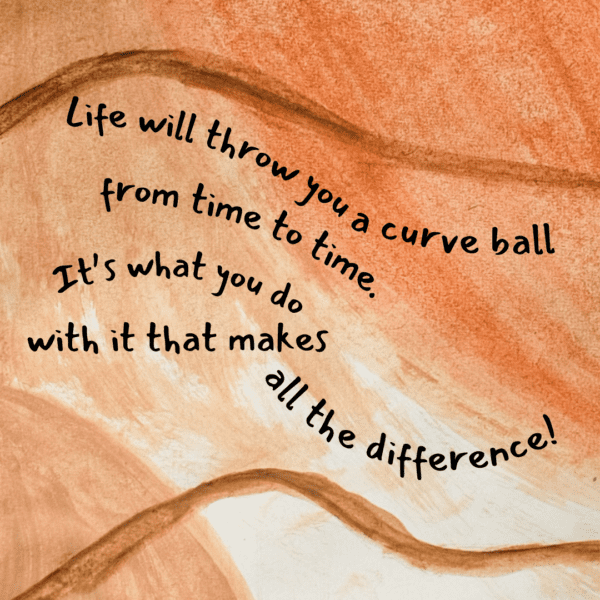 Life will throw you a curve ball
from time to time.
It's what you do
with it that makes
all the difference!